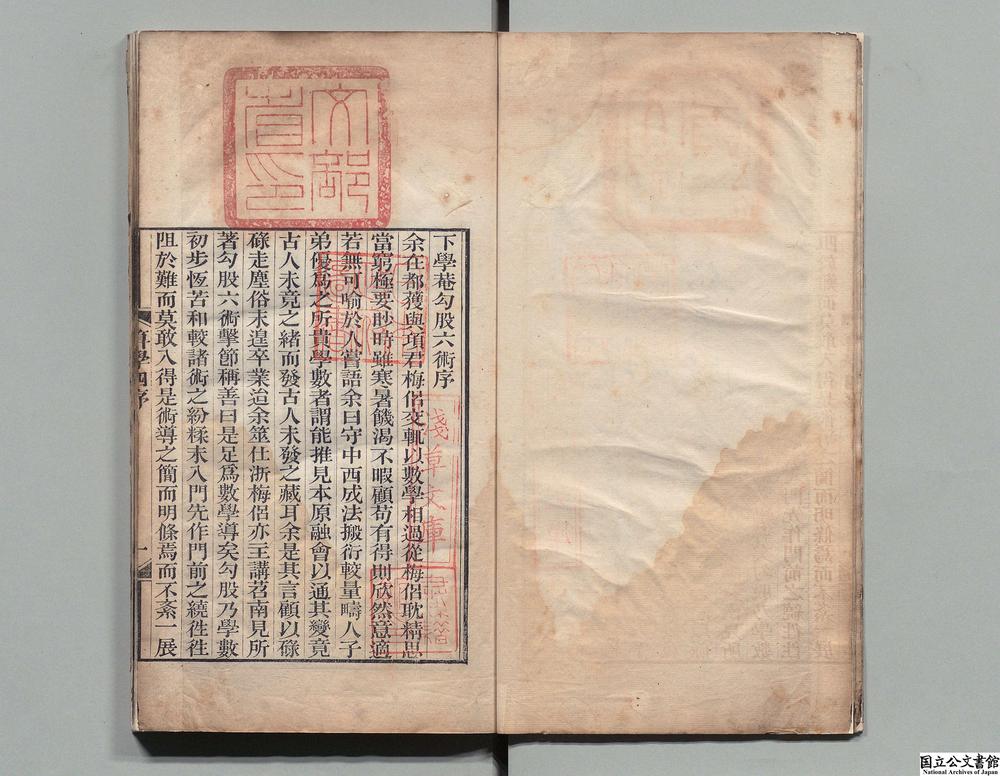 下學菴勾股六術序
余在都獲與項君梅侶交輒以數學相過從梅侶耽精思
當窮極要眇時雖寒暑饑渴不暇顧苟有得則欣然意適
若無可喻於人嘗語余曰守中西成法搬衍較量疇人子
弟優爲之所貴學數者謂能推見本原融會以通其變竟
古人未竟之緒而發古人未發之藏耳余是其言顧以碌
碌走塵俗未遑卒業迨余筮仕浙梅侶亦主講苕南見所
著勾股六術擊節稱善曰是足爲數學導矣勾股乃學數
初步恆苦和較諸術之紛糅未入門先作門前之繞徃徃
阻於難而莫敢入得是術導之簡而明條焉而不紊一展
序
一
文部
省印
淺草文庫
国立公文書館
National Archives of Japan